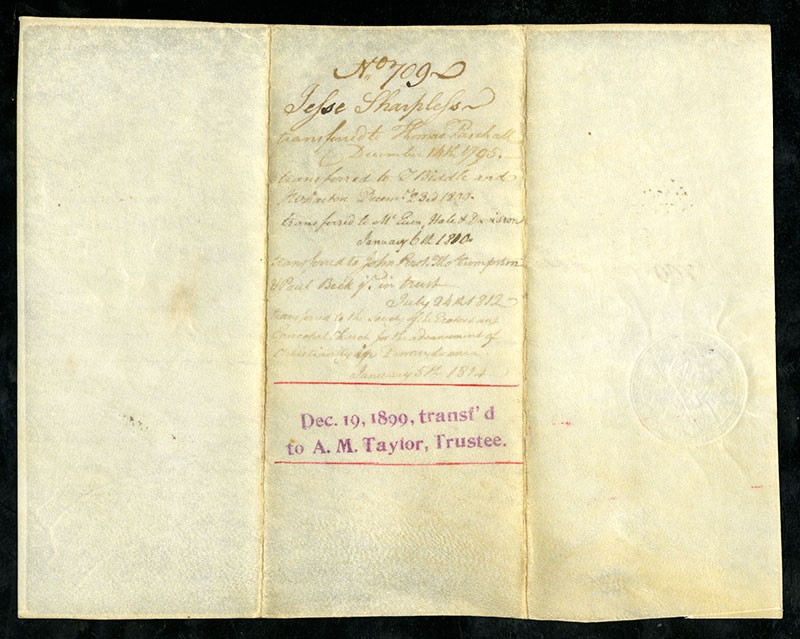 No. 709
Jesse Sharpless
transferred to Thomas Paschall
December 14th, 1795.
transferred to T Biddle and
Decemr. 23d
transferred to Mc Euen, Hale & Davidson
January 6th 1810
transferred to John Perot, Thompson
& Paul Beck jr. in trust
July 24th 1812
transferred to the Society of the Protestant
Episcopal Church for the advancement of
Christianity in Pennsylvania
January 5th
Dec. 19, 1899, transf'd
to A. M. Taylor, Trustee.